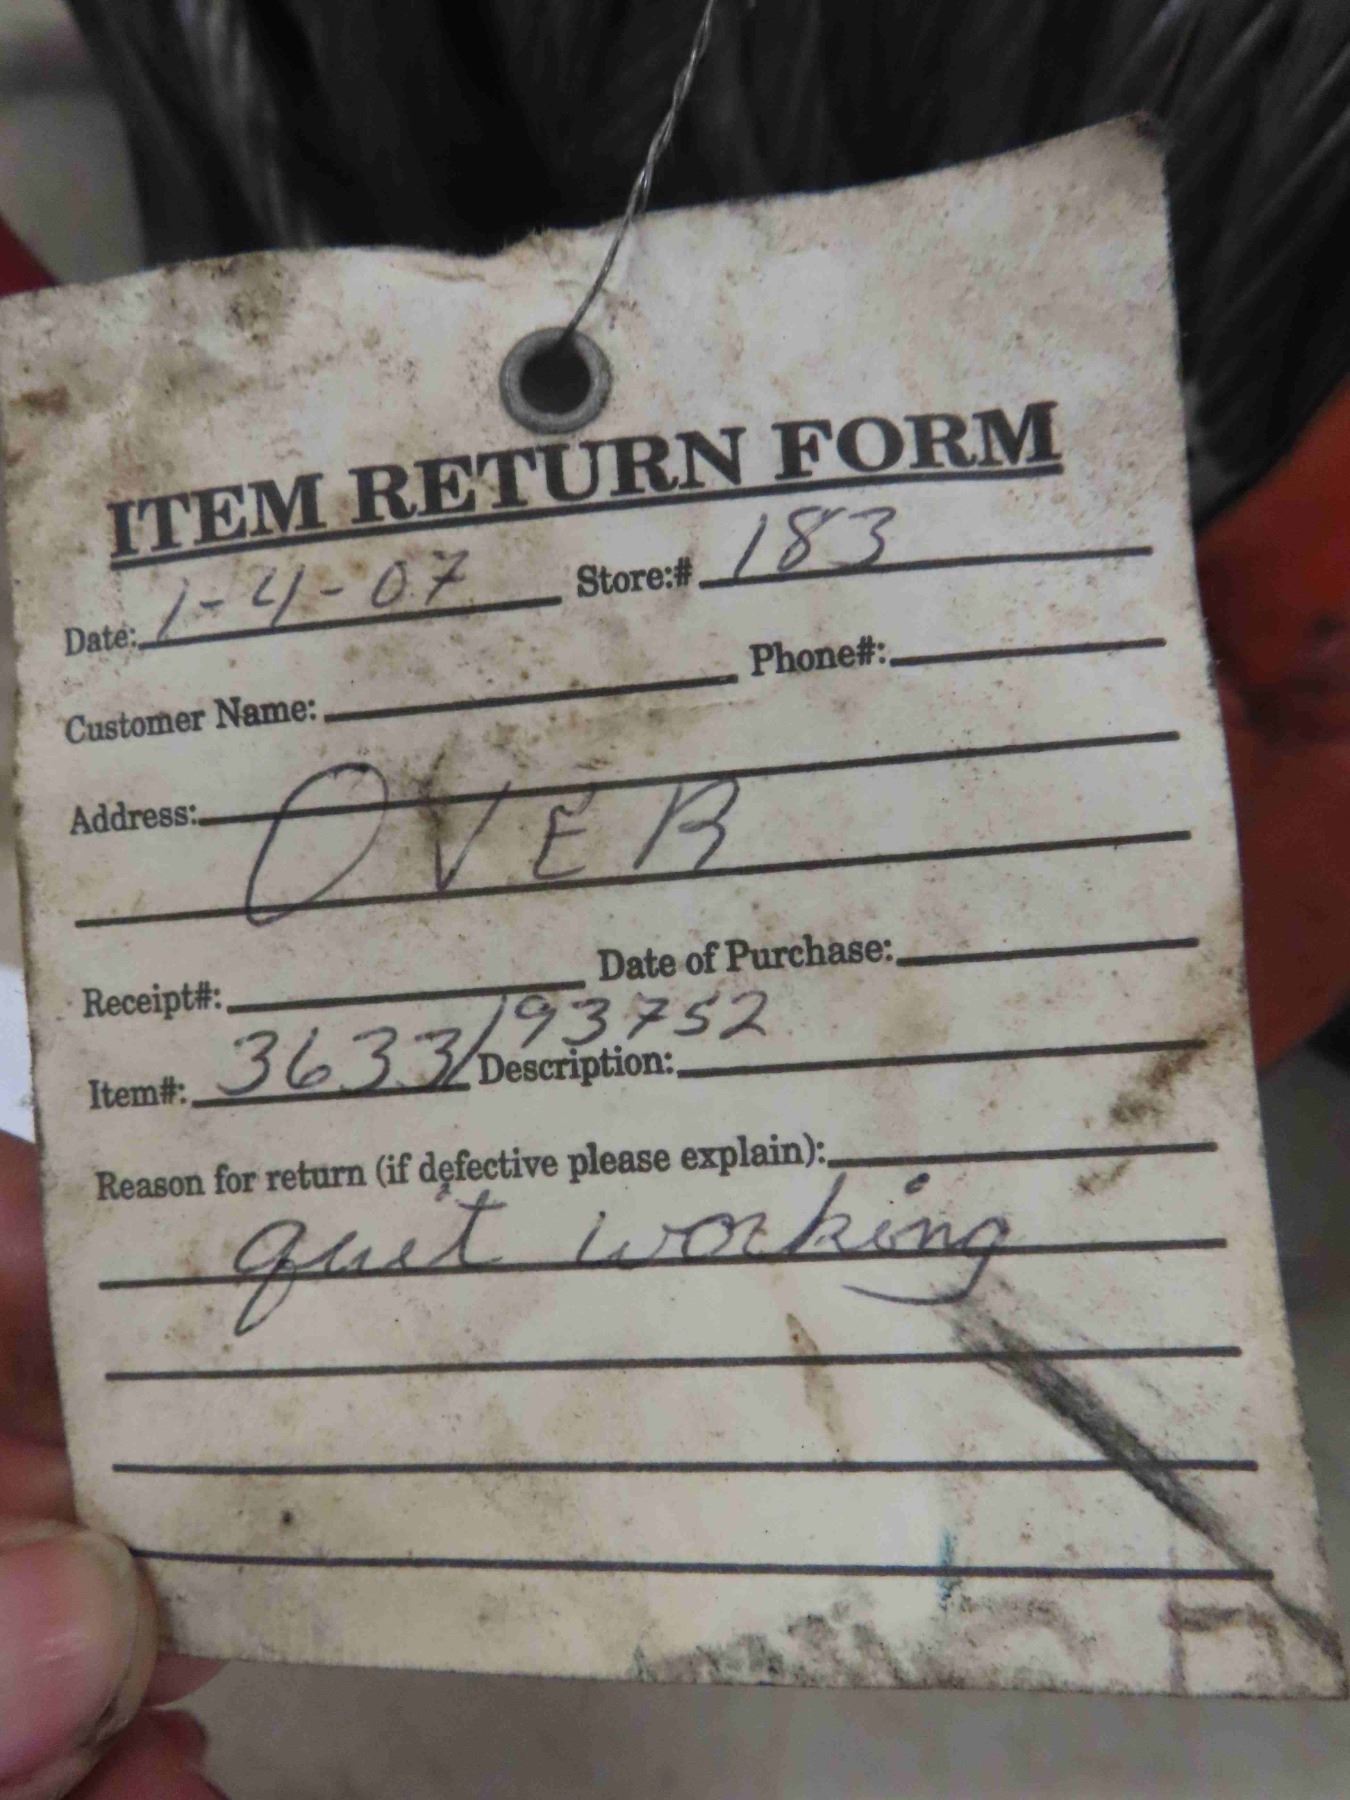 ITEM RETURN FORM
Date: 1-4-07 Store:# 183
Customer Name: Phone#:
Address:
OVER
Receipt#: Date of Purchase:
Item#: 3633/193752 Description:
Reason for return (if defective please explain):
quit working